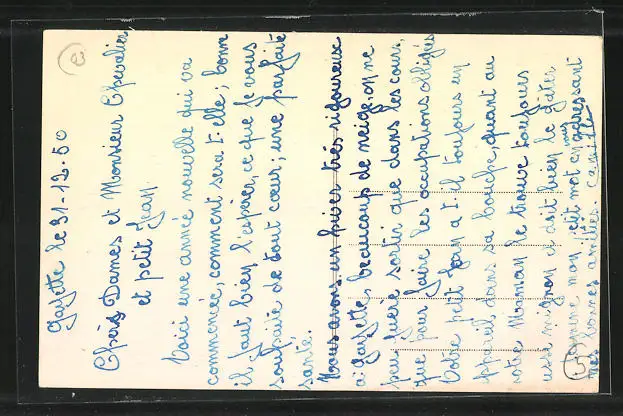 Gayette le 31-12-50
Chères Dames et Monsieur Chevalier
et petit Jean.
Voici une année nouvelle qui va
commencée, comment sera t-elle; bonne
il faut bien l'espérer, ce que je vous
souhaite de tout cœur; une parfaite
santé.
Nous avons un hiver très rigoureux
à Gayette, beaucoup de neige on ne
peu guère sortir que dans les cours,
que pour faire les occupations obligées
Votre petit Jean a t-il toujours un
appareil dans sa bouche, quant au
votre Maman le trouve toujours
aussi mignon et doit bien le gâter
mon petit mot en vous adressant
mes bonnes amitiés. Camille